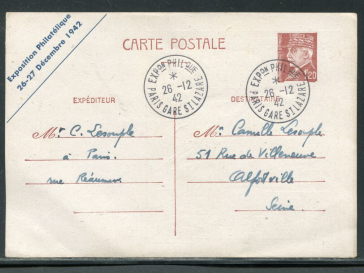 Exposition Philatélique
26-27 Décembre 1942
CARTE POSTALE
EXPON PHILQUE
26 -12
42
PARIS GARE ST LAZARE
EXPON PHILQUE
26 -12
42
PARIS GARE ST LAZARE
20
EXPÉDITEUR
DESTINATAIRE
Mr C. Lecouple
à Paris
rue Réaumur
Mr Camille Lecouple
51 Rue de Villeneuve
Alfortville
Seine.